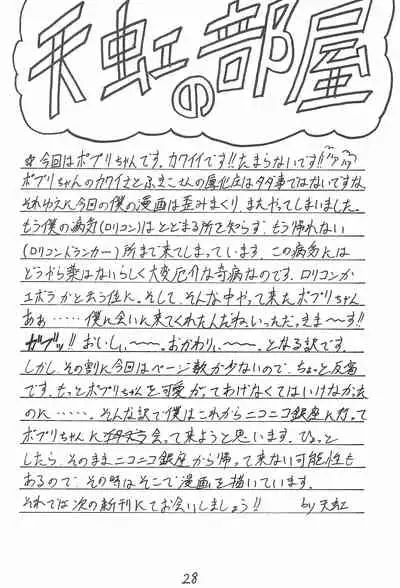 天虹の部屋
☆今回はポプリちゃんです。カワイイです!!たまらないです!!
ポプリちゃんのカワイさとふきこさんの風化度はタダ事ではないですな
それゆえに今日の僕の漫画は歪みまくり、またやってしまいました。
もう僕の病気(ロリコン)はとどまる所を知らず、もう帰れない
(ロリコンドランカー)所まで来てしまっています。この病気には
どうやら薬はないらしく大変厄介な奇病なのです。ロリコンか
エボラかと云う位に。そして、そんな中やって来たポプリちゃん
ああ……僕に会いに来てくれたんだね。いっただっきま～～す!!
ガブッ!!おいしい、～～～。おかわりぃ、～～～。となる訳です。
しかし、その割に今回はページ数が少ないので、ちょっと反省
です。もっとポプリちゃんを可愛がってあげなくてはいけなかった
のに……。そんな訳で僕はこれからニコニコ銀座に行って
ポプリちゃんに会って来ようと思います。ひょっと
したら、そのままニコニコ銀座から帰って来ない可能性も
あるので、その時はそこで漫画を描いています。
それでは次の新刊にてお会いしましょう!! by天虹
28